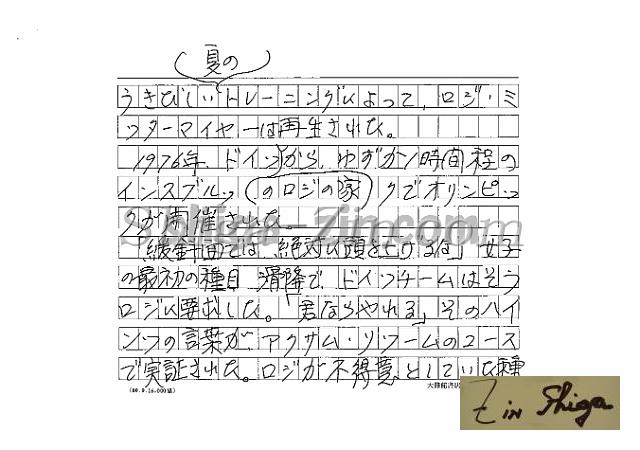 夏の
うきびしいトレーニングによって、ロジ・ミ
ッターマイヤーは再生された。
1976年、ドイツから、ゆずか時間程の
インスブルッ のロジの家 クでオリンピッ
クが開催された。
「緩斜面では、絶対に頭を上げるな」女子
の最初の種目、滑降で、ドイツチームはそう
ロジに要求した。「君ならやれる」そのハイ
ンツの言葉が、アクサム・リツームのコース
で実証された。ロジが不得意としていた種
Shiga-Zin.com
Z in Shiga